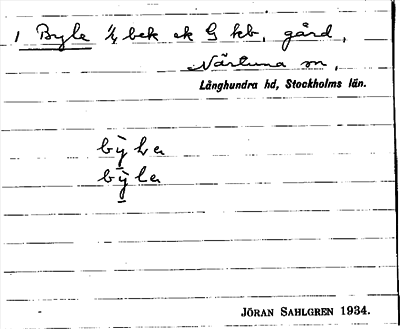 1 Byle ½ bek ek G kb, gård,
Närtuna sn,
Långhundra hd, Stockholms län.
bỳla
bỳla
JÖRAN SAHLGREN 1934.